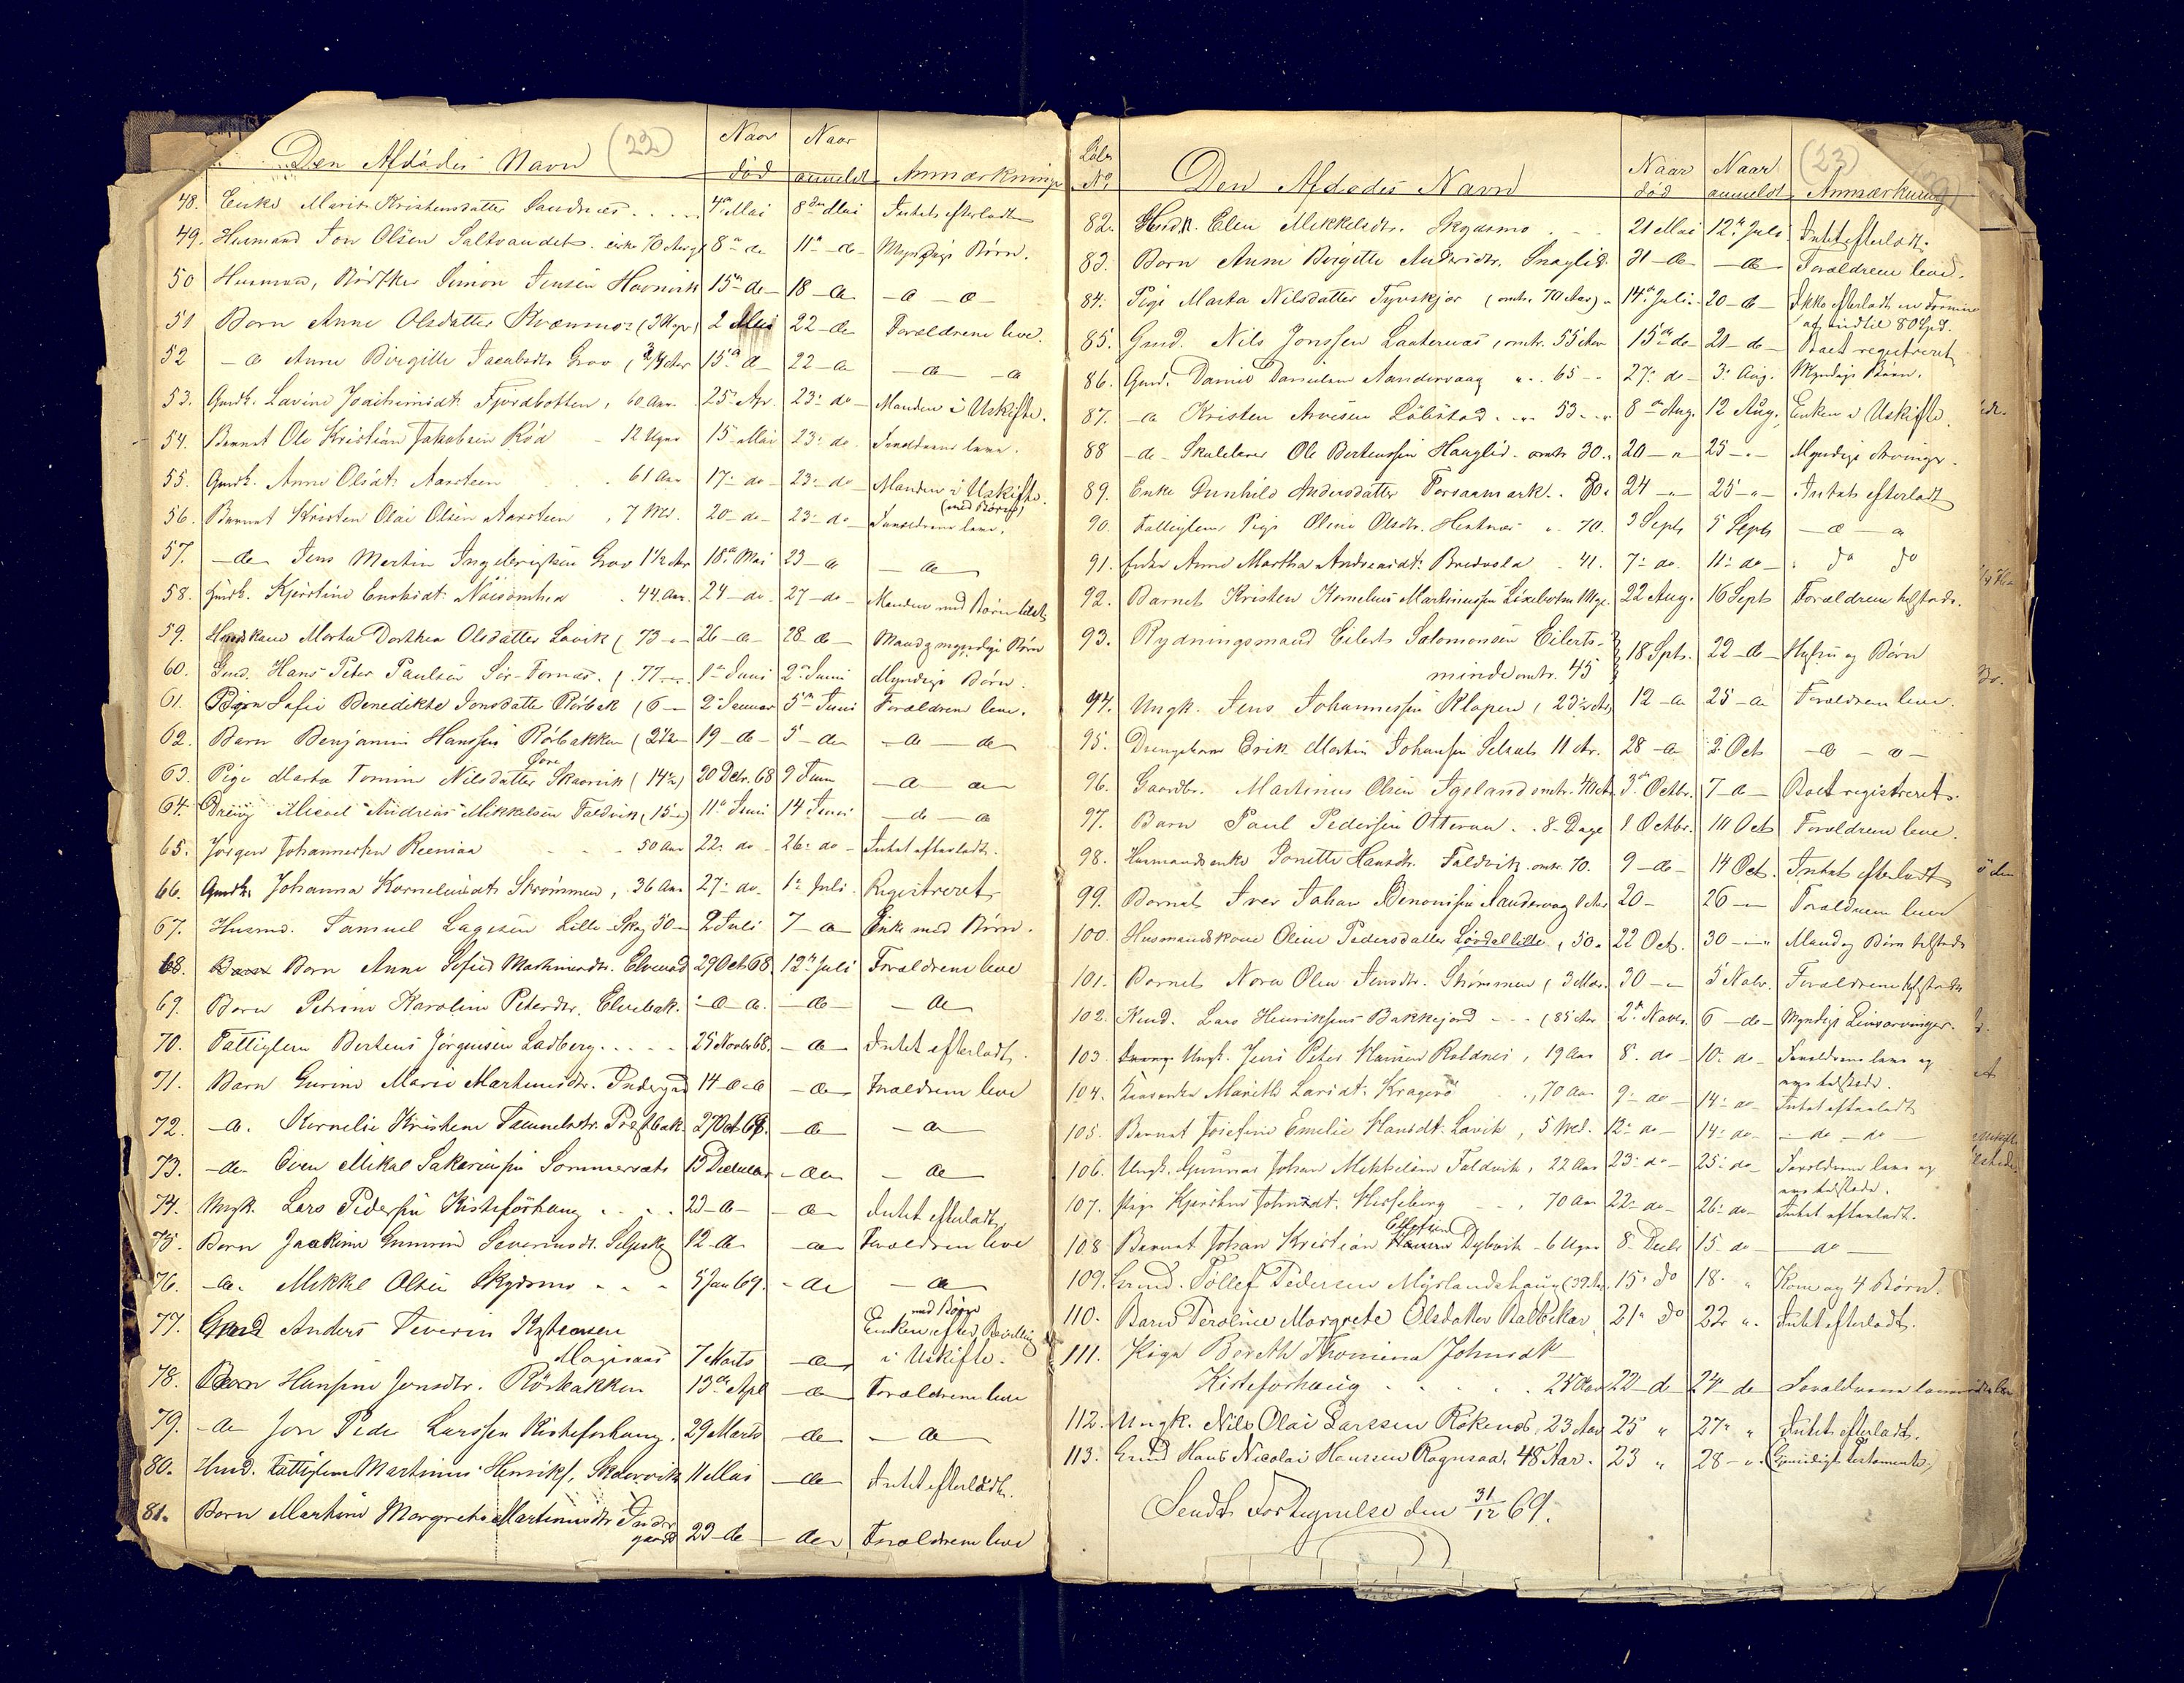 (22)
Den Afdødes Navn Naar død Naar anmeldt Anmærkninger
48. Enke Marit Kristensdatter Sandnes 4de Mai 8de Mai Intet efterladt
49. Husmand Jon Olsen Saltvandet 70 Aar 8de do 11te do Myndige Børn.
50 Husmand, Bødtker Simon Jensen Havnvik 15de do 18 do do do
51 Barn Anne Olsdatter Kvænmo (3 Uger) 2 Mai 22 do Forældrene leve.
52 do Anne Birgitte Jacobsdtr Grov (3/4 Aar 15de do 22 do do do
53. Gmdk. Lavine Joachimsdt. Fjordbotten, 60 Aar 25de Apr. 23de do Manden i Uskifte.
54. Barnet Ole Kristian Jakobsen Rød 12 Uger 15de Mai 23de do Forældrene leve.
55. Gmdk. Anne Olsdt. Aarsteen 61 Aar 17de do 23de do Manden i Uskifte.
(med Børn)
56. Barnet Kristen Olai Olsen Aarsteen, 7 Md. 20de do 23de do Forældrene leve.
57. do Jens Martin Ingebrigtsen Grov 1½ Aar 18de Mai 23 do do
58. Gmdk. Kjerstine Enoksdt. 44 Aar. 24 do 27 do Manden med Børn tilst.
59. Husmdskone Marta Dorthea Olsdatter Lavik (73 26 do 28 do Mand & myndige Børn
60. Gmd. Hans Peter Paulsen Sør-Fornæs. (77 1ste Juni 2den Juni Myndige Børn.
61. Barn Sofie Benedikte Jonsdatter Rørbak (6 2den Januar 5te Juni Forældrene leve.
62. Barn Benjamin Hanssen Rørbakken (2½ 19 do 5 do do do
63. Pige Marta Tomine Nilsdatter Skavvik (14 20 Decbr. 68 9 Juni do do
64. Dreng Mikael Andreas Mikkelsen Faldvik (15 11te Juni 14 Juni do do
65. Jørgen Johannessen Reenaa 50 Aar 22de do 26de do Intet efterladt.
66. Gmdk. Johanna Korneliusdt. Strømmen, 36 Aar 27de do 1ste Juli Registreret
67. Husmd. Samuel Lagesen Lille Skog 50 2 Juli 7 do Enke med Børn.
68. Barn Anne Sofie Mathiasdtr. Elvenæs 29 Octb 68. 12te Juli Forældrene leve
69. Barn Petrine Karoline Petersdtr. Elvebak. do do do do
70. Fattiglem Berteus Jørgensen Ladberg 25 Novbr 68. do Intet efterladt.
71. Barn Gurine Marie Martinusdtr. Indergaard 14 do do do Forældrene leve
72. do. Kornelie Kristine Samuelsdtr. Prestbak. 27 Oct 68. do do
73. do Oven Mikal Sakariassen Sommersæt 15 December do do
74. Ungk. Lars Pedersen Kisteforhaug 23 do do Intet efterladt
75. Barn Joakime Gunnerine Severinsdt. Seljeskog 12 do do Forældrene leve
76. do. Mikkel Olsen Skydsmo 5 Jan 69. do do
77. Gmd Anders Severin Kristensen
Mojsaas 7 Marts do Enken med Børn efter Bevilling i Uskifte.
78. Barn Hansine Jonsdtr. Rørbakken 13de Apl do Forældrene leve
79. do Jon Peder Larssen Kisteforhaug, 29 Marts do do
80. Hmd. Fattiglem Martinus Henriks. Skavvik 11 Mai do Intet efterladt.
81. Barn Martine Margrete Martinusdtr Indergaard 23 do do Forældrene leve
(23)
Løbe No. Den Afdødes Navn Naar død Naar anmeldt Anmærkning
82. Hmd.k. Elen Mikkelsdtr. Skydsmo 21 Mai 12te Juli Intet efterladt.
83. Barn Anne Birgitte Andersdtr. Snaglid 31 do do Forældrene leve.
84. Pige Marta Nilsdatter Tynskjær (omtr. 70 Aar) 14de Juli 20 do Ikke efterladt en Formue
af indtil 80 Spd.
85. Gmd. Nils Jonssen Lauternæs, omtr. 55 Aar 15de do 21 do Boet registreret
86. Gmd. Daniel Danielsen Aandervaag 65 27de do 3de Aug. Myndige Børn.
87. do Kristen Arnesen Løbstad 53 8de Aug. 12 Aug. Enken i Uskifte.
88 do Skolelærer Ole Bertenssen Hauglid. omtr 30. 20 25 Myndige Arvinger.
89. Enke Gunhild Andersdatter Forsaamark. 80. 24 25 Intet efterladt
90. Fattiglem Pige Oline Olsdtr. Hestnæs 70. 3 Septb 5 Septb do do
91. Enke Anne Martha Andreasdt. 41. 7de do. 11te do do do
92. Barnet Kristen Kornelius Martinussen 22 Aug. 16 Septb Forældrene tilstede.
93. Rydningsmand Eilert Salomonsen Eilerts-
minde omtr. 45 18 Sptb. 22 do Hustru og Børn
94. Ungk. Jens Johannessen Klapen, 23½ Aar 12 do 25 do Forældrene leve.
95. Drengebarn Erik Martin Johansen Selsæt 11 Ar. 28 do 2 Oct do do
96. Gaardbr. Martinus Olsen Igeland omtr. 40 Aar 3de Octbr. 7 do Boet registreret.
97. Barn Paul Pedersen Otteraa 8 Dage 1 Octbr. 10 Oct Forældrene leve.
98. Husmandsenke Jonette Hansdtr. Faldvik omtr. 70. 9 do 14 Oct. Intet efterladt
99. Barnet Iver Johan Benonisen Aandervaag 20 26 Forældrene leve
100. Husmandskone Oline Pedersdatter Løvdal lille, 50. 22 Oct. 30 Mand og Børn tilstede
101. Barnet Nora Olea Jensdtr. Strømmen (3 Mdr. 30 5 Nobr. Forældrene tilstede
102. Kmd. Lars Henriksens Bakkejord (85 Ar 2de Novbr. 6 do Myndige Livsarvinger.
103. Ungk. Jens Peter Hansen Roldnes, 19 Aar 8de do 10de do Forældrene leve og
ere tilstede.
104. Marith Larsdt. Kragerø, 70 Aar 9de do 14de do Intet efterladt
105. Barnet Josefine Emelie Hansdt. Lavik, 5 Md. 12te do 14de do do do
106. Ungk. Gunnar Johan Mikkelsen Faldvik, 22 Aar 23de do 25de do Forældrene leve og
ere tilstede.
107. Pige Kjerstine Johnsdt. 70 Aar 22de do 26de do Intet efterladt.
108 Barnet Johan Kristian Ellefsen Dybvik 6 Uger 8 Decbr 15 do do
109. Gmd. Tollef Pedersen Myrlandshaug (39 Aar 15de do 18. " Kone og 4 Børn.
110. Barn Peroline Margrete Olsdatter 21de do 22 " Intet efterladt.
111. Pige Bereth Thomina Johnsdt
Kisteforhaug 24 Aar 22 do 24 do Forældrene leve
112. Ungk. Nils Olai Larssen Rokenes, 23 Aar 25 " 27 " Intet efterladt.
113. Gmd Hans Nicolai Hanssen Rognsaa, 48 Aar. 23 " 28 ". Gjensidigt Testamente
Sendt Fortegnelse den 31/12 69.